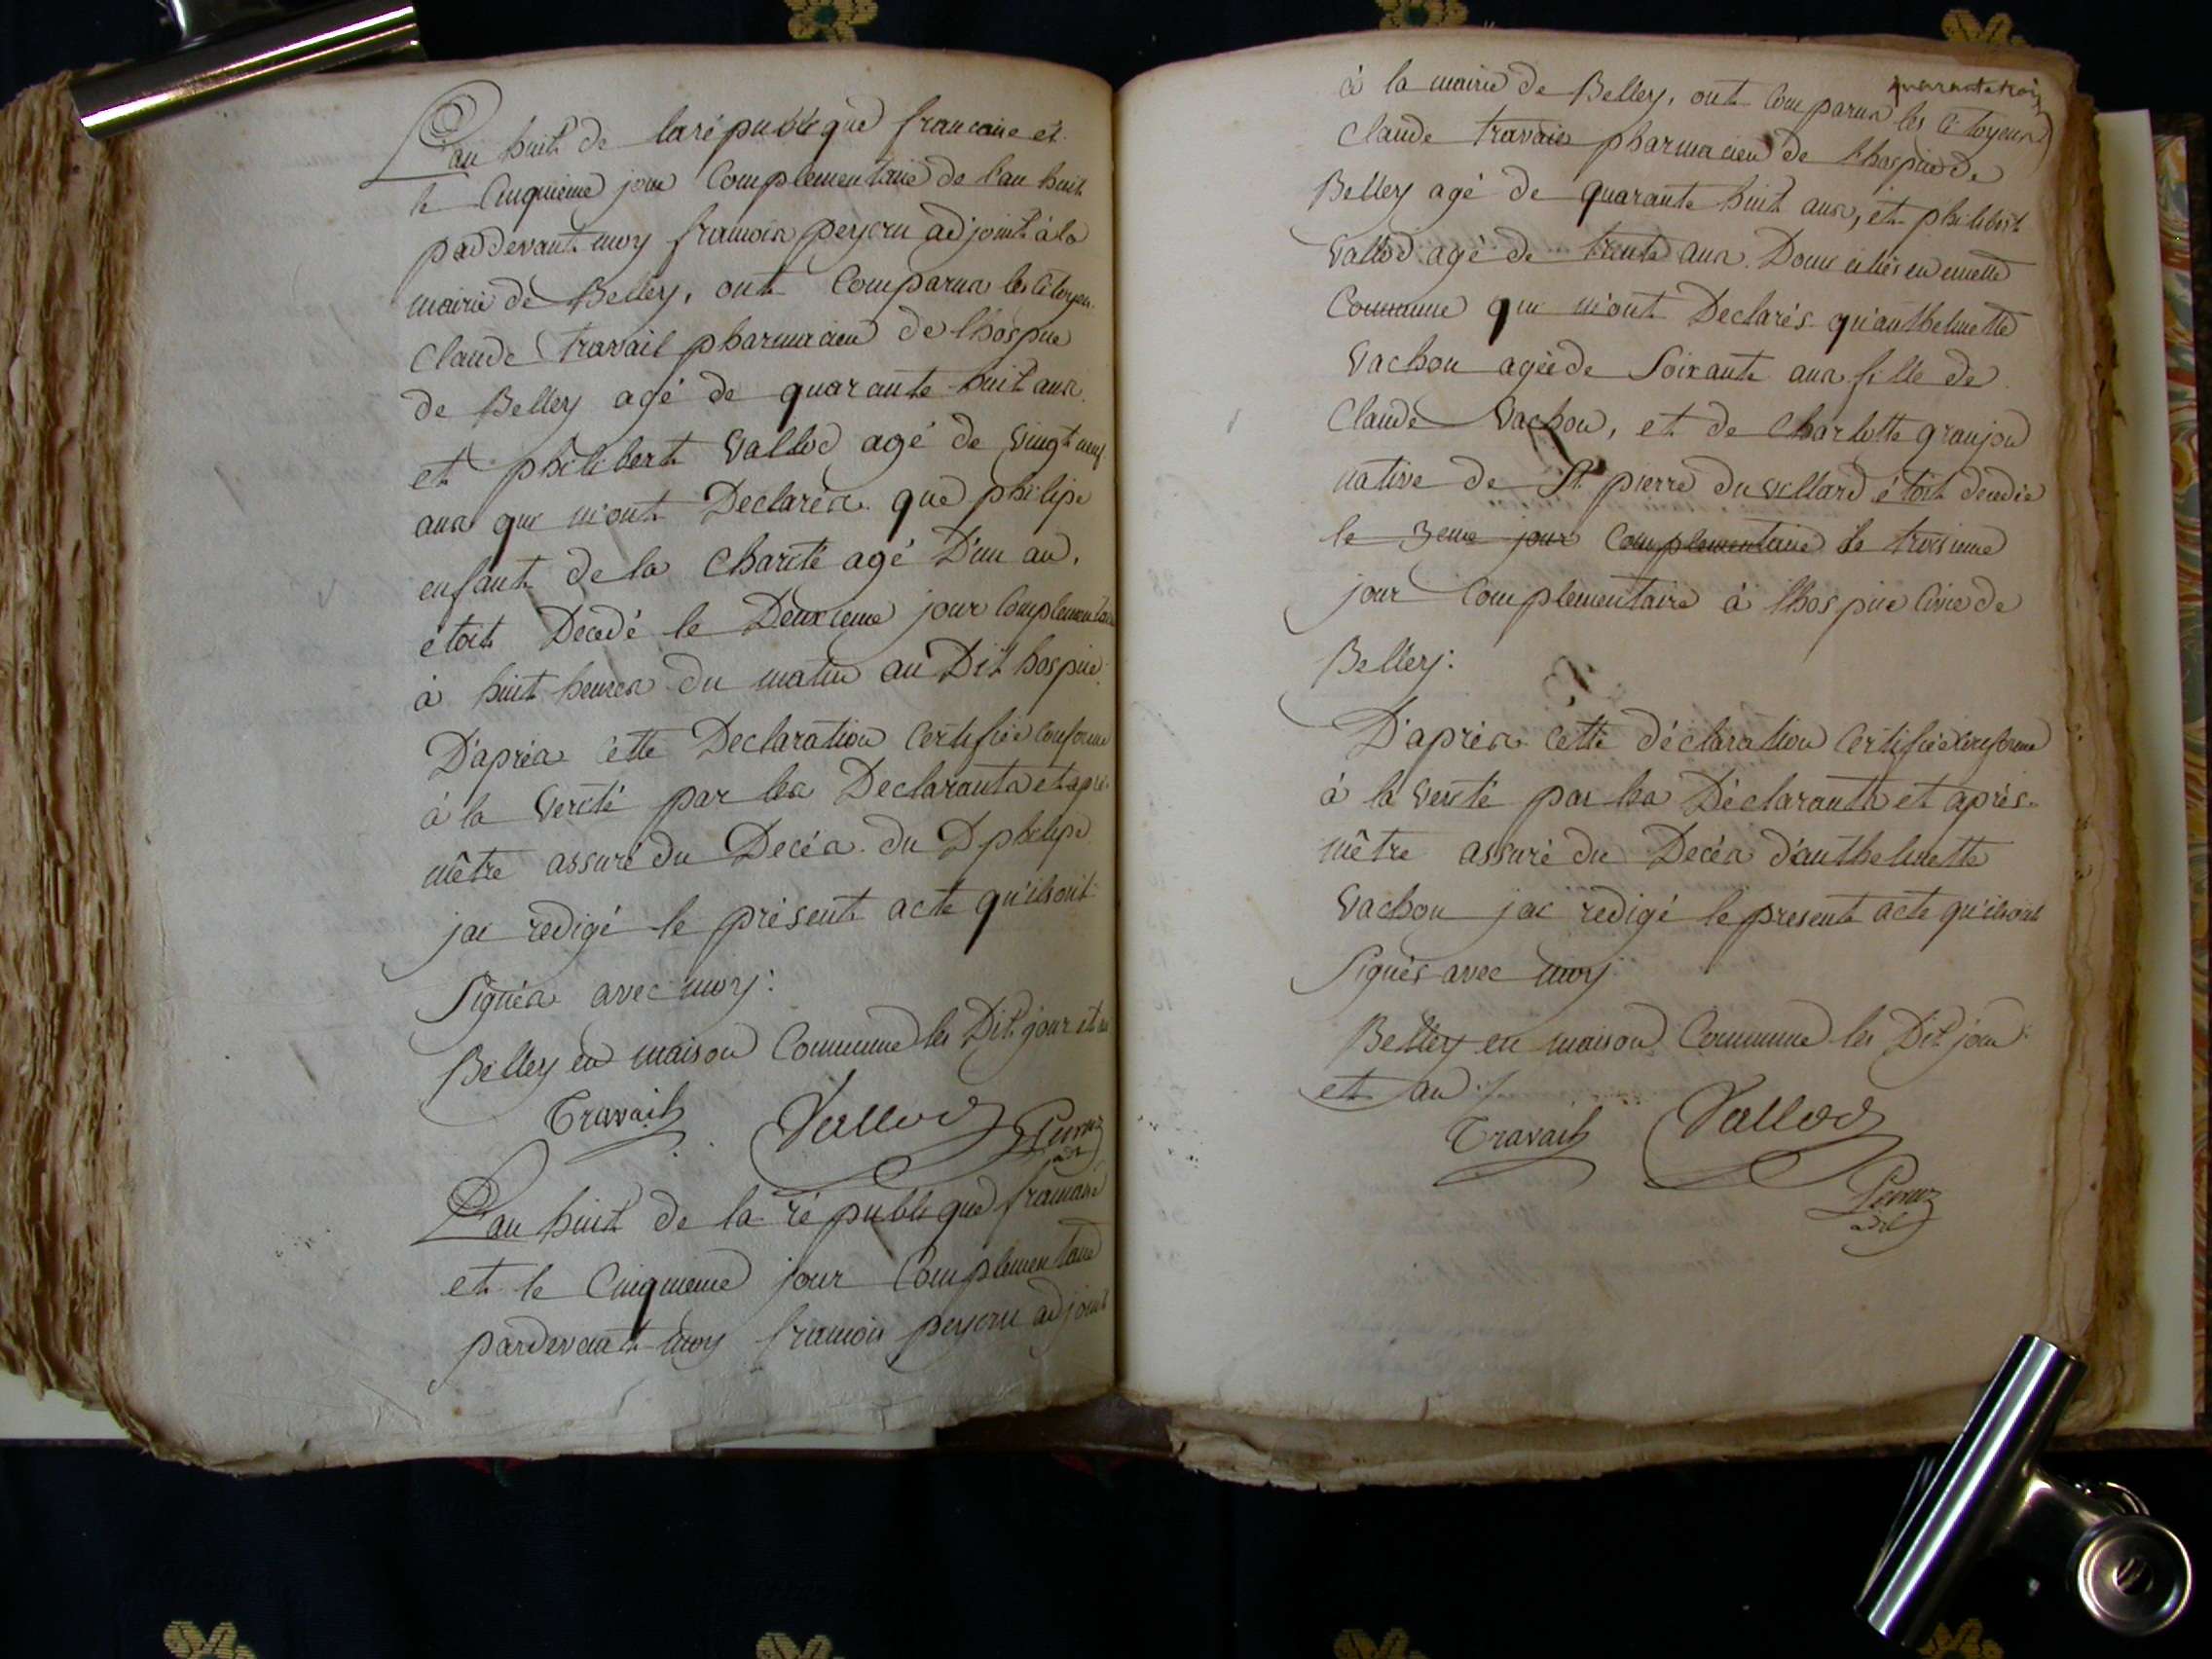 L'an huit de la république francaise et
le Cinquième jour Complementaire de l'an huit
pardevant moy francois peyeru adjoint à la
mairie de Belley, ont Comparus les Citoyens
Claude travail pharmacien de lhospice
de Belley agé de quarante huit ans
et philibert Vallod agé de vingt neuf
ans qui m'ont Declarés que philipe
enfant de la Charité agé D'un an,
étoit Decedé le Deuxieme jour Complementaire
à huit heures du matin au Dit hospice.
D'aprés cette Declaration Certifiée Conforme
à la Verité par les Declarants et aprés
mêtre assuré du Decés du D philipe
jai redigé le présent acte qu'ils ont
Signés avec moy:
Belley en maison Commune les Dit jour et an
Travail Vallod
adt
L'an huit de la république francaise
et le Cinquieme jour Complementaire
pardevant moy francois peyeru adjoint
quarante trois
à la mairie de Belley, ont Comparus les Citoyens
Claude travail pharmacien de lhospice de
Belley agé de quarante huit ans, et philibert
Vallod agé de trente ans Domiciliés en cette
Commune qui m'ont Declarés qu'anthelmette
Vachon agée de Soixante ans fille de
Claude Vachon, et de Charlotte granjon
native de St. pierre du villard étoit decedée
le 3eme jour Complementaire le troisieme
jour Complementaire à lhospice Civic de
Belley:
D'aprés cette déclaration Certifiée Conforme
à la Verité par les Déclarants et aprés
mêtre assuré du Decés d'anthelmette
Vachon jai redigé le present acte qu'ils ont
Signés avec moy
Belley en maison Commune les Dit jour
et an
Travail Vallod
adt